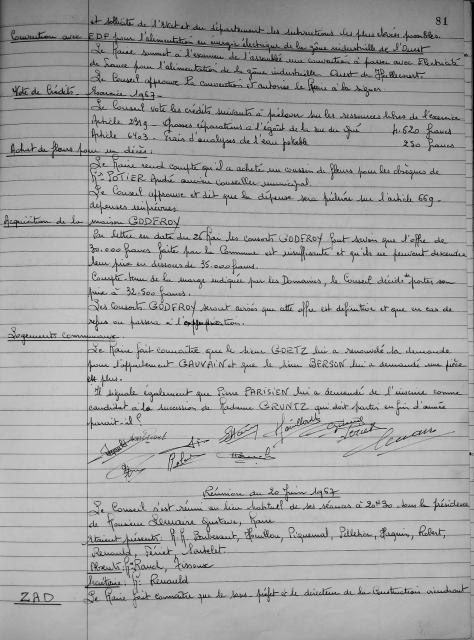 81
et sollicite de l'Etat et du département les subventions les plus élevées possibles.
Convention avec EDF pour l'alimentation en énergie électrique de la zône industrielle de l'Ouest
Le Maire soumet à l'examen de l'assemblée une convention à passer avec Electricité
de France pour l'alimentation de la zône industrielle Ouest de
Le Conseil approuve la convention et autorise le Maire à la signer
Vote de Crédits. Exercice 1967.
Le Conseil vote les crédits suivants à prélever sur les ressources libres de l'exercice
Article 2319 - Grosses réparations à l'égout de la rue du Gué 4.620 francs
Article 6403 - Frais d'analyses de l'eau potable 250 francs
Achat de fleurs pour un décès :
Le Maire rend compte qu'il a acheté un coussin de fleurs pour les obsèques de
Mr POTIER André ancien Conseiller municipal.
Le Conseil approuve et dit que la dépense sera prélevée sur l'article 669 -
dépenses imprévues
Acquisition de la maison GODEFROY
Par lettre en date du 26 Mai les consorts GODEFROY font savoir que l'offre de
30.000 francs faite par la Commune est insuffisante et qu'ils ne peuvent descendre
leur prix en dessous de 35.000 francs.
Compte-tenu de la marge indiquée par les Domaines, le Conseil décide de porter son
prix à 32.500 francs.
Les Consorts GODEFROY seront avisés que cette offre est définitive et que en cas de
refus on passera à l'expropriation.
Logements communaux.
Le Maire fait connaître que le sieur GOETZ lui a renouvelé sa demande
pour l'appartement GAUVAIN et que le sieur BERSON lui a demandé une pièce
de plus.
Il signale également que Pierre PARISIEN lui a demandé de l'inscrire comme
candidat à la succession de Madame GRUNTZ qui doit partir en fin d'année
parait-il ?
Réunion du 20 Juin 1967
Le Conseil s'est réuni au lieu habituel de ses séances à 20h30 sous la présidence
de Monsieur Lemaire Gustave, Maire
Etaient présents : M.M. Piquemal, Pelletier, Robert,
Renauld,
Absents: Mr
Secrétaire : Mr Renauld
ZAD Le Maire fait connaître que le sous-préfet et le directeur de la Construction viendront